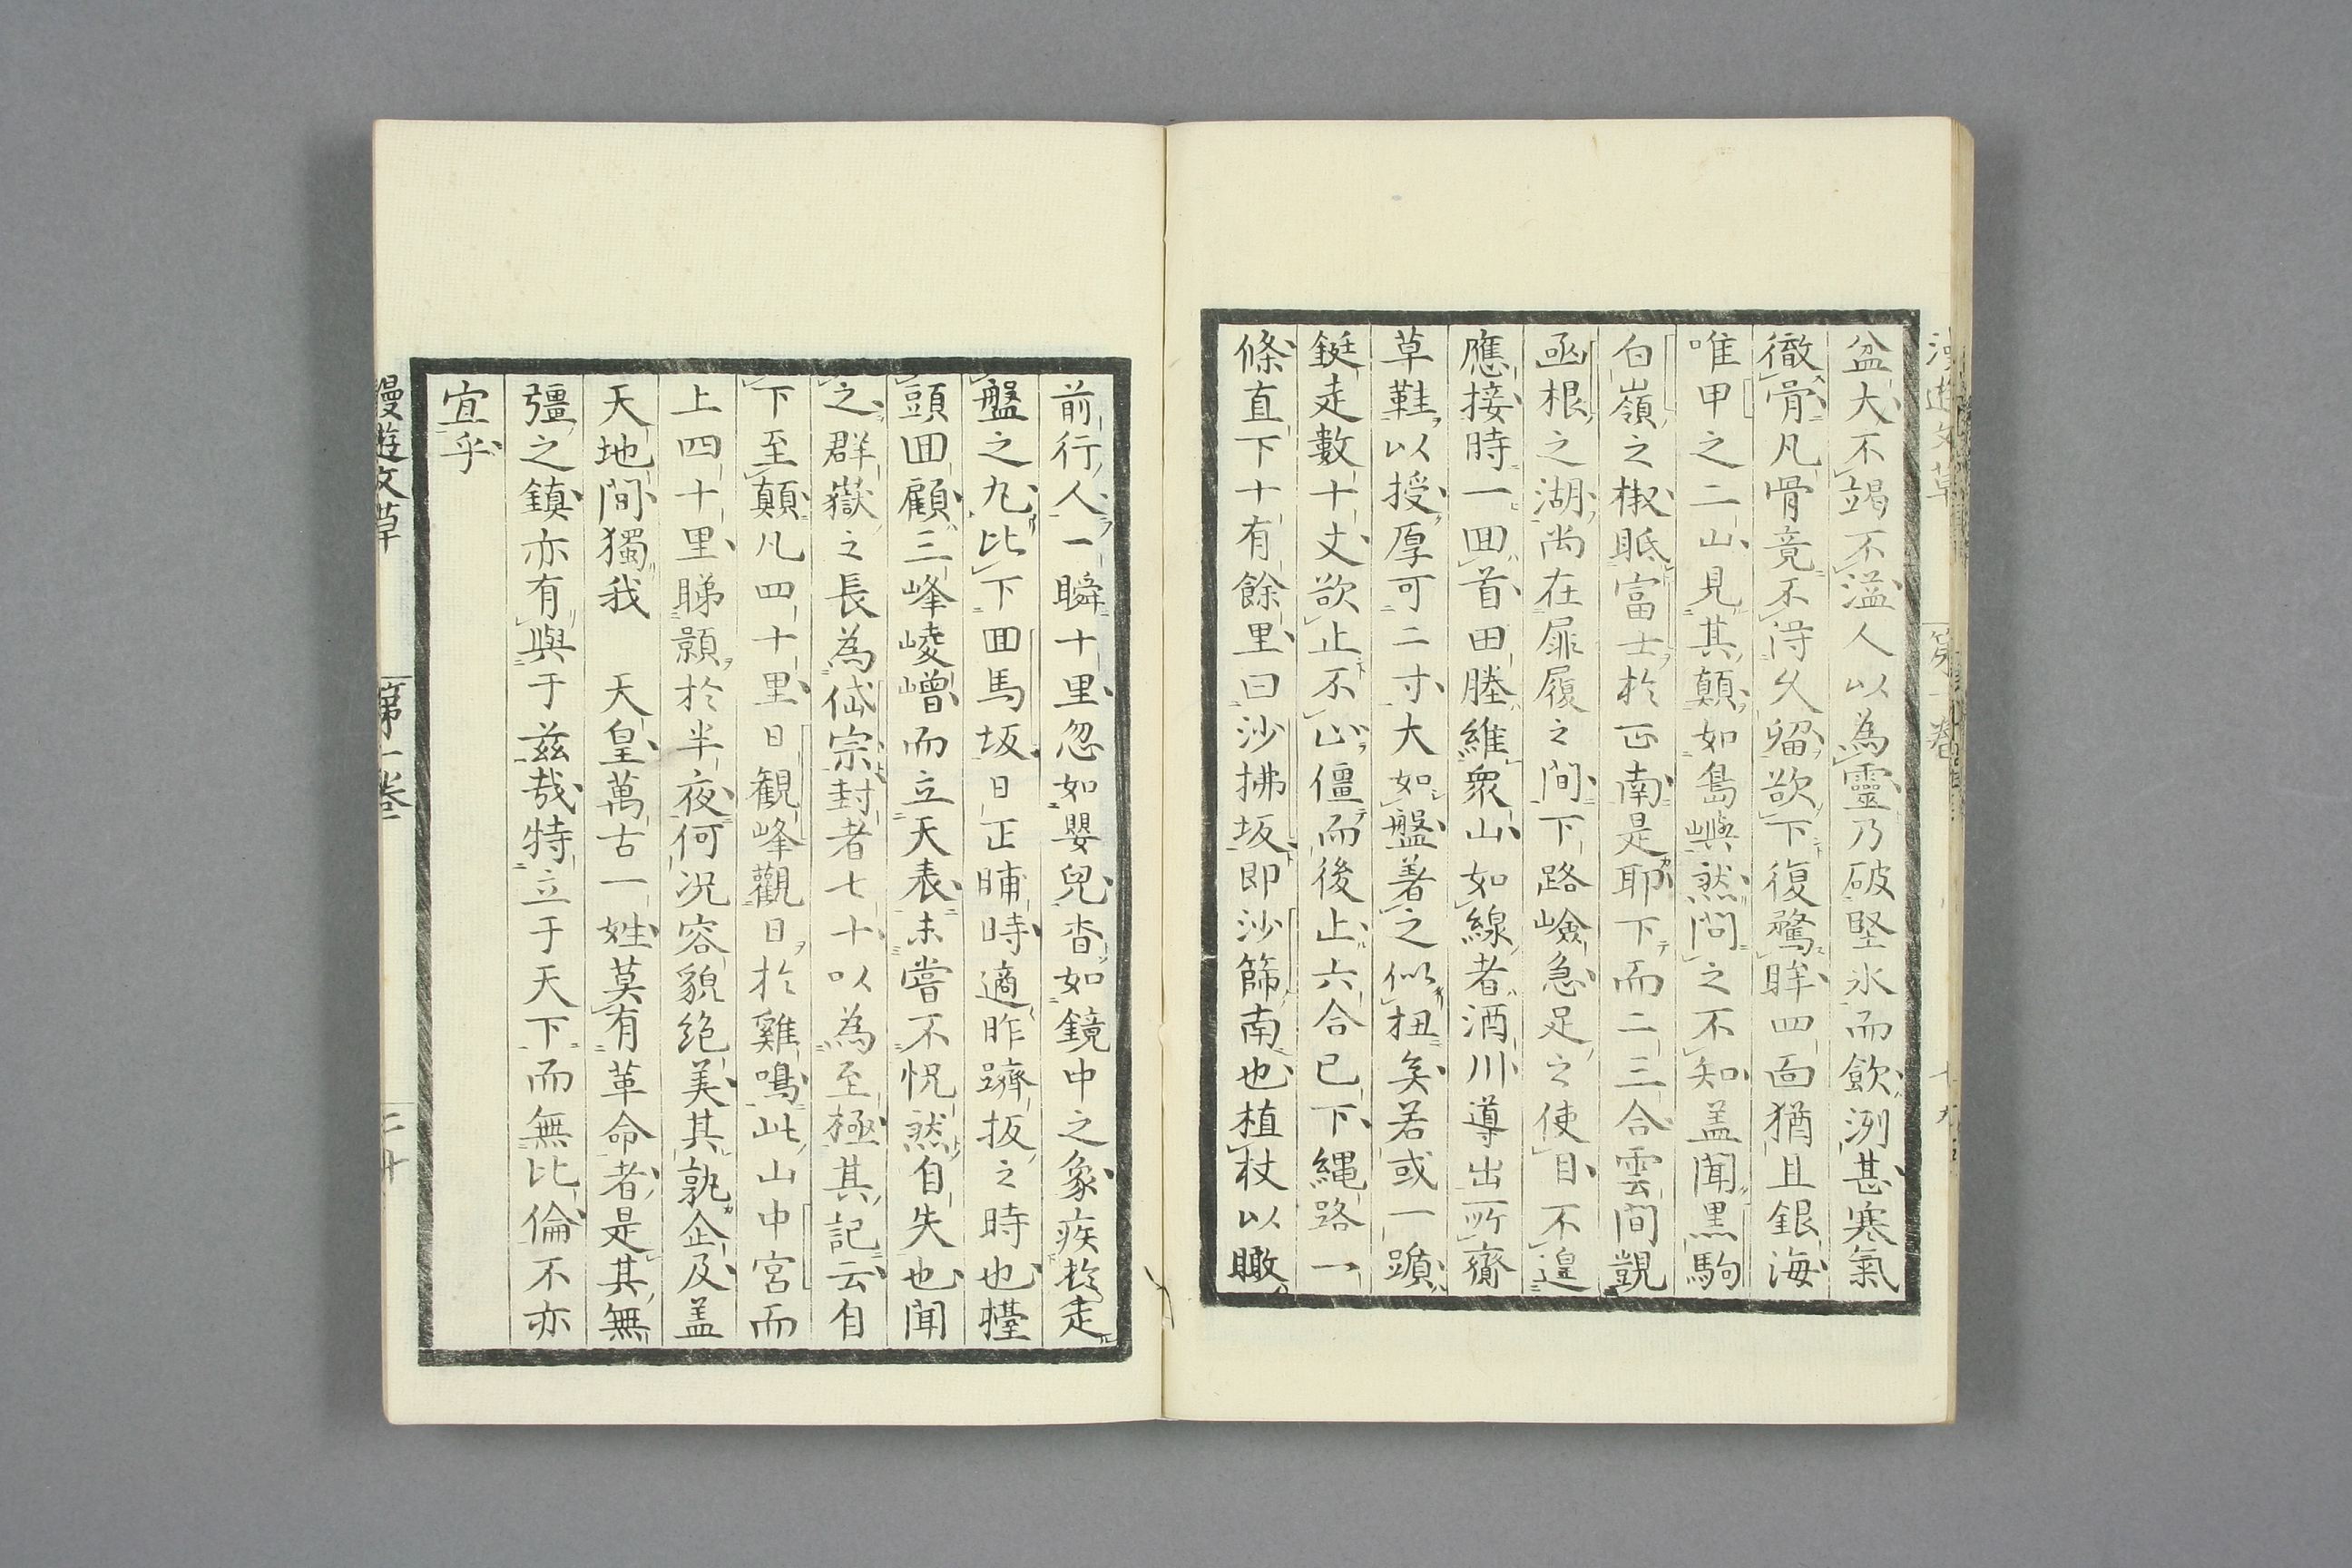 盆大不竭不溢人以為靈乃破堅氷而飲洌甚寒氣
徹骨凡骨竟不得久留欲下復騖眸四面猶且銀海
唯甲之二山見其顛如島嶼然問之不知盖聞黒駒
白嶺之椒眂富士於正南是耶下而二三合雲間覬
凾根之湖尚在屝履之間下路嶮急足之使目不遑
應接時一囬首田塍維衆山如線者酒川導出所齎
草鞋以授厚可二寸大如盤著之似扭矣若或一蹟
鋌走數十丈欲止不止僵而後止六合已下縄路一
條直下十有餘里曰沙拂坂即沙篩南也植杖以瞰
前行人一瞬十里忽如嬰兒杳如鏡中之象疾於走
盤之丸比下囬馬坂日正晡時適昨躋扳之時也擡
頭囬顧三峰崚嶒而立天表未嘗不怳然自失也聞
之群嶽之長為岱宗封者七十以為至極其記云自
下至顛凡四十里日観峰觀日於雞鳴此山中宮而
上四十里睇顥於半夜何况容貌絶美其孰企及盖
天地間獨我　天皇萬古一姓莫有革命者是其無
彊之鎮亦有與于茲哉特立于天下而無比倫不亦
宜乎
漫遊文草　第一巻　二十